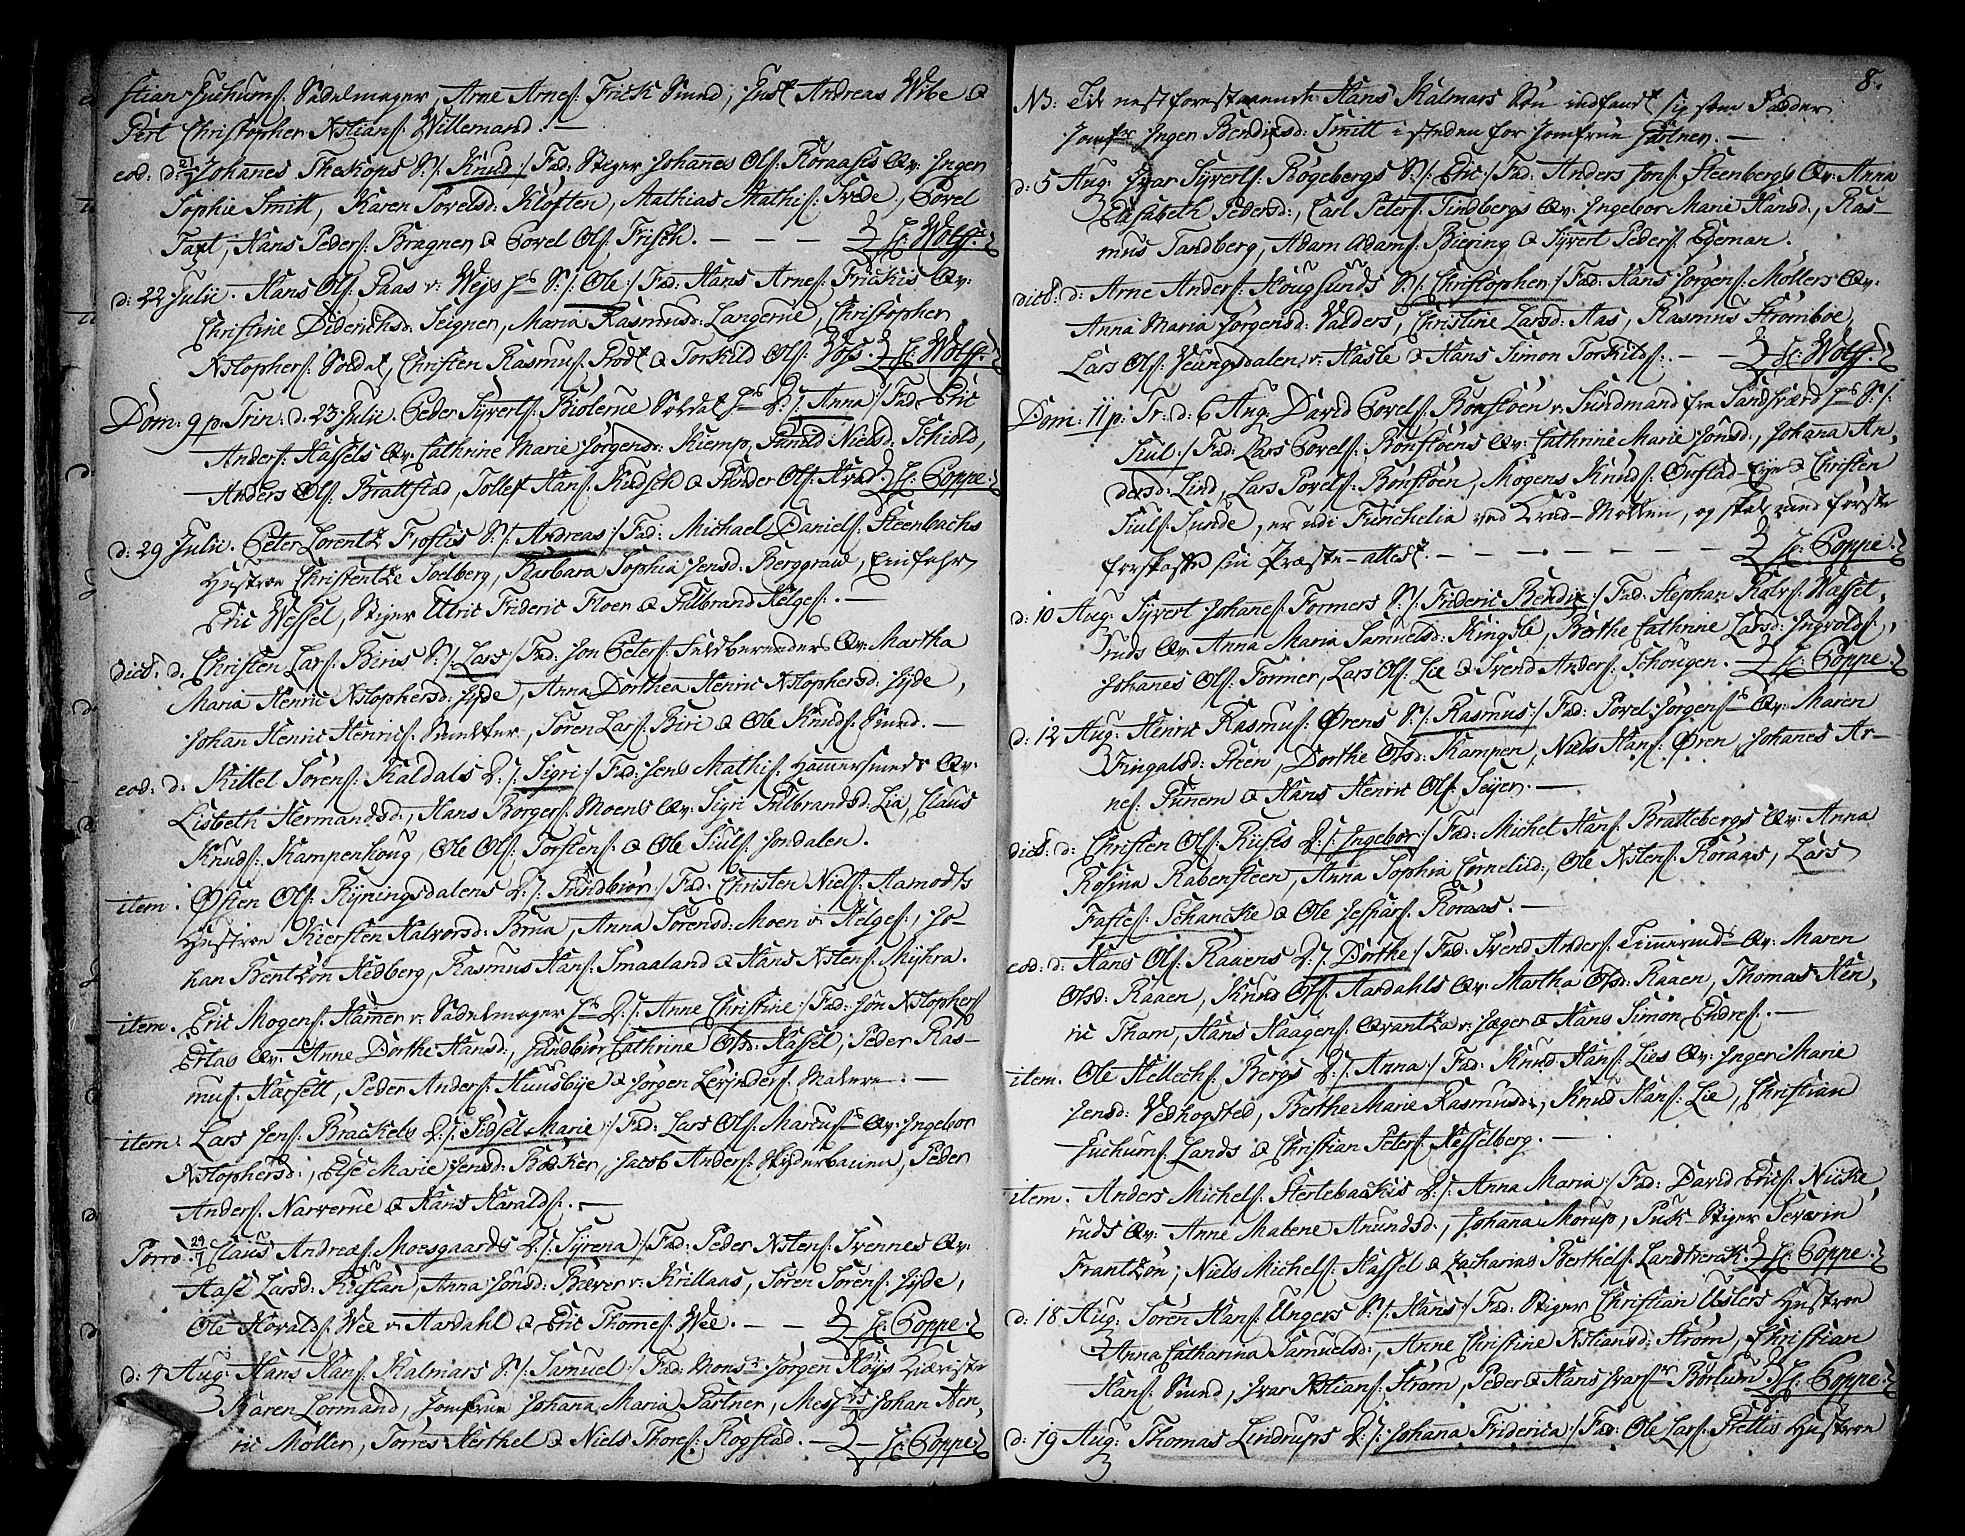 stian Juchums: Sadelmager, Arne Arnes: Frick Smed, Just Andreas Wibe &
Pert Christopher Nstians: Willemand. —
eod: d: 21/7 Johannes Theskops S:/: Knud :/ Fad: Stiger Johannes Ols: Roraasis Qv: Inger
Sophie Smitt, Karen Povelsd: Kloften, Mathias Mathis: Svede, Povel
Taxt, Hans Peders: Bragner & Povel Ols: Frisch. — — — H: Wolff.
d: 22 Julii. Hans Ols: Paas v: Weys hs S:/: Ole :/ Fad: Hans Arnes: Frickis Qv:
Christine Diderichsd: Seigner, Maria Rasmusd: Langerue, Christopher
Nstophers: Soldat, Christen Rasmus: Rodt & Torkild Ols: Voss. H: Wolff.
Dom: 9 p: Trin: d: 23 Julii. Peder Syverts: Biolerue Soldat hs D:/: Anna :/ Fad: Eric
Anders: Hassels Qv: Cathrine Marie Jørgensd: Kiemp, Gunild Nielsd: Schiold,
Anders Ols: Brattstad, Tollef Hans: Kudsch & Gunder Ols: Hvad. H: Poppe.
d: 29 Julii. Peter Lorentz Frostis S:/: Andreas :/ Fad: Michael Daniels: Steenbachs
Hustroe Christentze Soelberg, Barbara Sophia Jensd: Berggraw, Einfahr
Eric Wessel, Stiger Ulric Frideric Floer & Gulbrand Helges: —
dict: d: Christen Lars: Biris S:/: Lars :/ Fad: Jon Peters: Guldbrænder Qv: Martha
Maria Henric Nstophersd: Hyde, Anna Dorthea Henric Nstophersd: Hyde,
Johan Henric Henrics: Smelter, Søren Lars: Biri & Ole Knuds: Smed. —
eod: d: Kittel Sørens: Kaldals D:/: Sigri :/ Fad: Jens Mathis: Hammersmeds Qv:
Lisbeth Hermandsd:, Hans Borgers: Moens Qv: Sigri Gulbrandsd: Lia, Claus
Knuds: Kampenhoug, Ole Ols: Torstens: & Ole Juls: Jondalen.
item. Østen Ols: Ryningsdalens D:/: Gundbiør :/ Fad: Christen Niels: Aamodts
Hustroe Kiersten Halvorsd: Brua, Anna Sørensd: Moen v: Helges:, Jo-
han Bentzon Hedberg, Rasmus Hans: Smaaland & Hans Nstens: Myhra.
item. Eric Mogens: Hamer v: Sadelmager hs D:/: Anne Christine :/ Fad: Jon Nstophers
Ertas Qv: Anne Dorthe Hansd:, Gundbiør Cathrine Olsd: Hassel, Peder Ras-
mus: Harsett, Peder Anders: Huusbye & Jørgen Leynders: Malere. —
item: Lars Jens: Brackels D:/: Sidsel Marie :/ Fad: Lars Ols: Marcus Qv: Ingebor
Nstophersd:, Else Marie Jensd: Bøcker, Jacob Anders: Skyderbaune, Peder
Anders: Narverue & Hans Haralds: —
Porro: 29/7 Claus Andreæs: Moesgaards D:/: Syrena :/ Fad: Peder Nstens: Svennes Qv:
Aase Larsd: Ristan, Anna Jonsd: Bæver v: Krillaas, Søren Sørens: Hyde,
Ole Haralds: Wee v: Aardahl & Eric Thomes: Wee. — — H: Poppe.
d: 4 Aug: Hans Hans: Kalmars S:/: Samuel :/ Fad: Monsr: Jørgen Høys Kiæriste
Karen Lormand, Jomfrue Johana Maria Gartner, Messrs Johan Hen-
ric Møller, Torris Herthel & Niels Thores: Rogstad. — H: Poppe.
8.
NB: Til nestforestaaende Hans Kalmars Søn indfandt sig som Fadder
Jomfr Inger Bendixsd: Smitt i steden for Jomfrue Gartner. —
d: 5 Aug: Ivar Syverts: Rogebergs S:/: Eric :/ Fad: Anders Jons: Steenbergs Qv: Anna
Elisabeth Pedersd:, Carl Peters: Tindbergs Qv: Ingebor Marie Hansd:, Ras-
mus Tandberg, Adam Adams: Biering & Syvert Peders: Edeman.
dict: d: Arne Anders: Hougsunds S:/: Christopher :/ Fad: Hans Jørgens: Møllers Qv:
Anna Maria Jørgensd: Valders, Christine Larsd: Aas, Rasmus Stromboe,
Lars Ols: Veungsdalen v: Hasle & Hans Simon Torkilds: — — H: Wolff.
Dom: 11 p: Tr: d: 6 Aug: David Povels: Bonstoen v: Sundmand fra Sandsværd hs S:/:
Juul :/ Fad: Lars Povels: Bonstoens Qv: Cathrine Marie Jonsd:, Johana An-
dersd: Lind, Lars Povels: Bonstoen, Mogens Knuds: Ourstad-Eye & Christen
Juuls: Sunde, er udi Funchelia ved Krud-Møllen, og skal med første
forskaffe sin Præste-attest. — — — — H: Poppe.
d: 10 Aug: Syvert Johanes: Formers S:/: Frideric Bendix :/ Fad: Stephan Halvs: Wassel-
ruds Qv: Anna Maria Samuelsd: Kingsle, Berthe Cathrine Larsd: Ingvolds:,
Johanes Ols: Former, Lars Ols: Lie & Svend Anders: Schougen. — H: Poppe.
d: 12 Aug: Henric Rasmus: Ørens S:/: Rasmus :/ Fad: Povel Jørgens: Qv: Maren
Fingalsd: Steen, Dorthe Olsd: Kampen, Niels Hans: Øren, Johanes Ar-
nes: Funem & Hans Henric Ols: Seyer. —
dict: d: Christen Ols: Ruses D:/: Ingebor :/ Fad: Michel Hans: Brattebergs Qv: Anna
Rosina Rabensteen, Anna Sophia Cornelisd:, Ole Nstens: Roraas, Lars
Fastes: Schancke & Ole Jespars: Roraas. —
eod: d: Hans Ols: Raaens D:/: Dorthe :/ Fad: Svend Anders: Timermds Qv: Maren
Olsd: Raaen, Knud Ols: Aardahls Qv: Martha Olsd: Raaen, Thomas Hen-
ric Tham, Hans Haagens: Qvantza v: Jæger & Hans Simon Endres: —
item. Ole Hellechs: Bergs D:/: Anna :/ Fad: Knud Hans: Lies Qv: Inger Marie
Jensd: Vedhogsted, Berthe Marie Rasmusd:, Knud Hans: Lie, Christian
Juchums: Lands & Christian Peters: Hesselberg. —
item. Anders Michels: Sterlebackis D:/: Anna Maria :/ Fad: David Erics: Nicke-
ruds Qv: Anne Malene Amundsd:, Johana Morup, Puk-Stiger Severin
Frantzøn, Niels Michels: Hassel & Zacharias Berthels: Landtverck. H: Poppe.
d: 18 Aug: Søren Hans: Ungers S:/: Hans :/ Fad: Stiger Christian Uslers Hustroe
Anna Catharina Samuelsd:, Anne Christine Nstiansd: Strøm, Christian
Hans: Smed, Ivar Nstians: Strøm, Peder & Hans Ivars: Børlum. H: Poppe.
d: 19 Aug: Thomas Lindrups D:/: Johana Friderica :/ Fad: Ole Lars: Flettis Hustroe